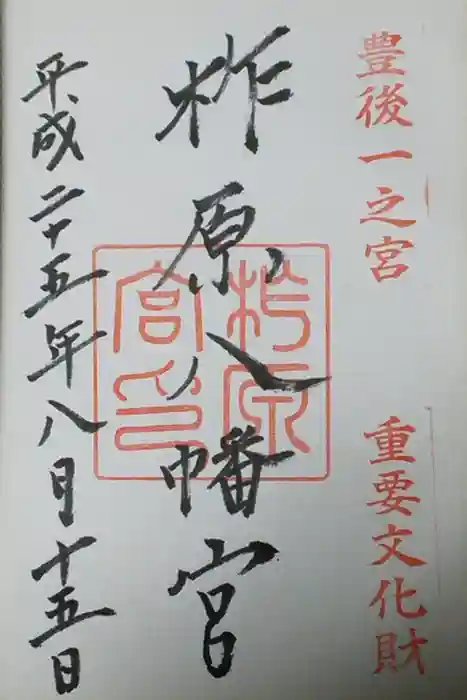 豊後一之宮 重要文化財
柞原八幡宮
柞原宮印
平成二十五年八月十五日